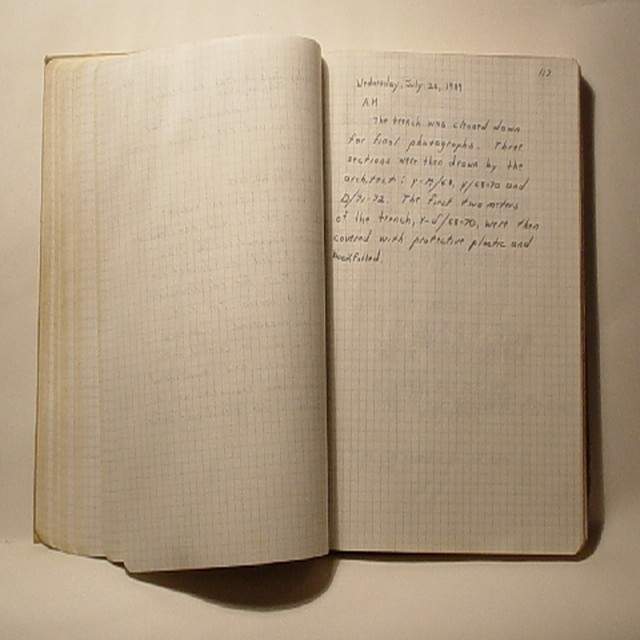 117
Wednesday, July 26, 1989
AM
The trench was cleaned down
for final photographs. Three
sections were then drawn by the
architect: Y-M/68, Y/68-70 and
D/71-72. The first two meters
of the trench, Y-D/68-70, were then
covered with protective plastic and
backfilled.